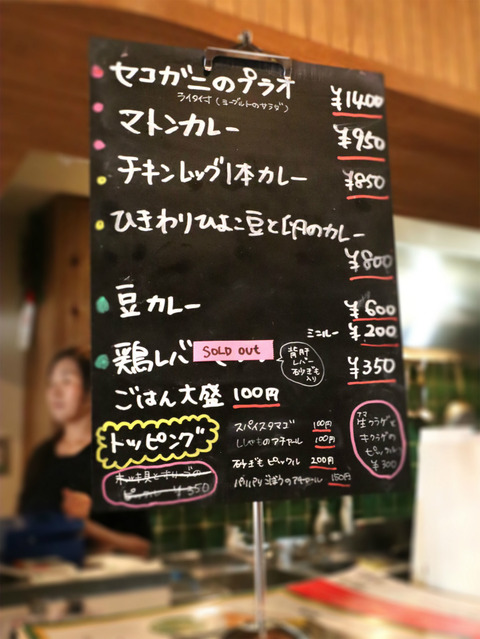 セコガニのプラオ
ライタ付(ヨーグルトのサラダ)
¥1400
マトンカレー
¥950
チキンレッグ1本カレー
¥850
ひきわりひよこ豆と卵のカレー
¥800
豆カレー
¥600
ミニルー ¥200
鶏レバ
SOLD OUT
背肝
レバー
砂ぎも
入り
¥350
ごはん大盛 100円
トッピング
スパイスタマゴ 100円
ししゃものアチャール 100円
砂ぎもピックル 200円
アチャール 150円
生クラゲと
キクラゲの
ピックル
¥300
ピックル ¥350